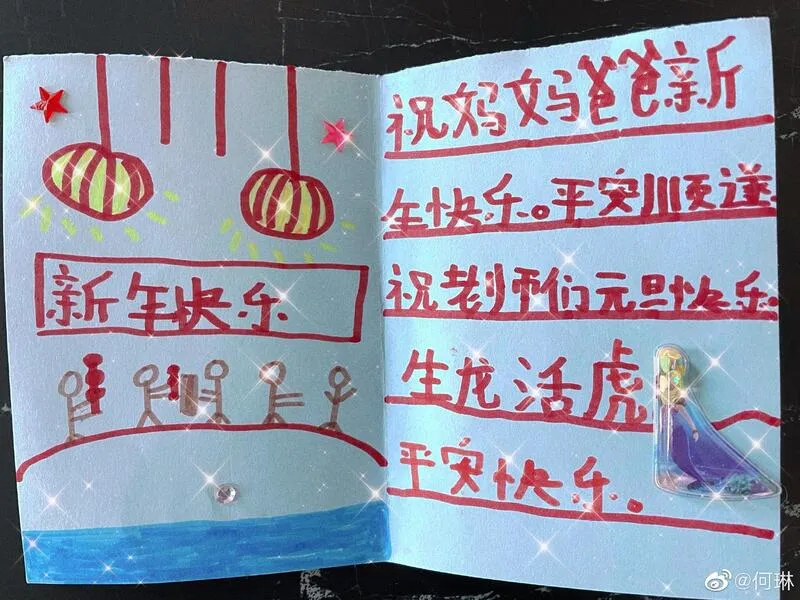 新年快乐
祝妈妈爸爸新
年快乐。平安顺遂
祝老师们元旦快乐。
生龙活虎
平安快乐。
@何琳